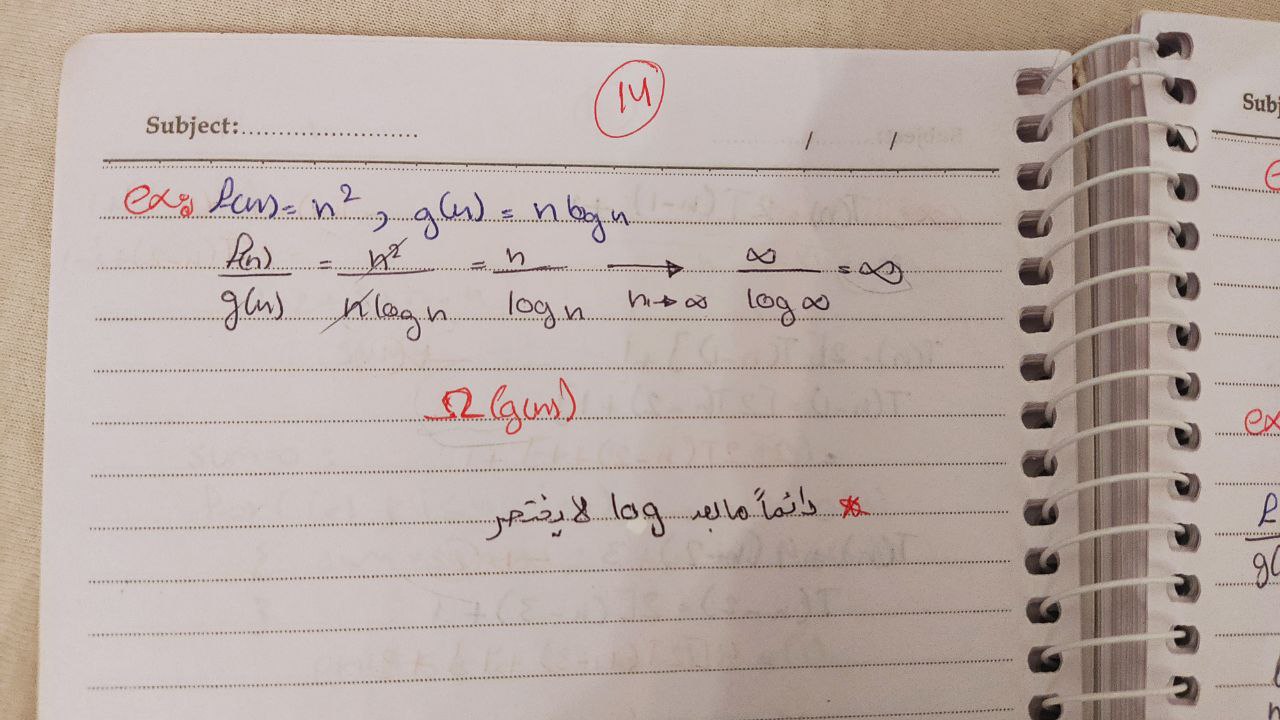 14
Subject:......................
/ /
ex: f(n) = n², g(n) = n log n
f(n)/g(n) = n²/n log n = n/log n → n→∞ ∞/log ∞ = ∞
Ω(g(n))
* دائماً ما بعد log لا يختصر
Subj
ex